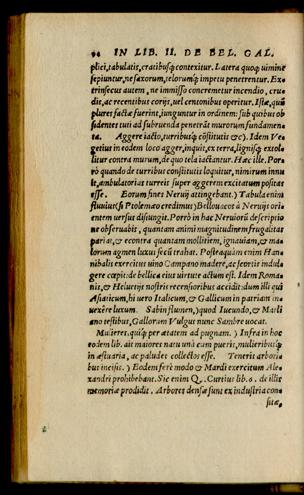 94 IN LIB. II. DE BEL. GAL.
plici, tabulatis, cratibusq́; contexitur. Latera quoq; uimine
sepiuntur, ne saxorum, telorumq́; impetu penetrentur. Ex-
trinsecus autem, ne immisso concremetur incendio, cru-
dis, ac recentibus corijs, uel centonibus operitur. Istæ, quũ
plures factæ fuerint, iunguntur in ordinem: sub quibus ob
sidentes tuti ad subruenda penetrãt murorum fundamen-
ta. Aggere iacto, turribusq́; cõstitutis &c.) Idem Ve
getius in eodem loco agger, inquit, ex terra, lignisq́; extol
litur contra murum, de quo tela iactantur. Hæc ille. Por
rò quando de turribus constitutis loquitur, nimirum innu
it, ambulatorias turreis super aggerem excitatum positas
esse. Eorum fineis Neruij attingebant.) Tabuda enim
fluuius (si Ptolemæo credimus) Bellouacos à Neruijs ori-
entem uersus disiungit. Porrò in hac Neruiorũ descriptio
ne obseruabis, quantum animi magnitudinem frugalitas
pariat, & econtra quantum mollitiem, ignauiam, & ma-
lorum agmen luxus secũ trahat. Posteaquàm enim Han
nibalis exercitus uino Campano madere, ac scortis indul-
gere cœpit: de bellica eius uirtute actum est. Idem Roma-
nis, & Heluetijs nostris recensioribus accidit: dum illi quidẽ
Asiaticum, hi uero Italicum, & Gallicum in patriam in-
uexêre luxum. Sabin flumen,) quod Iucundo, & Marli
ano testibus, Gallorum Vulgus nunc Sambre uocat.
Mulieres, quiq́; per ætatem ad pugnam.) Infra in hoc
eodem lib. ait maiores natu unà cum pueris, mulieribusq́;
in æstuaria, ac paludes collectos esse. Teneris arbori-
bus incisis.) Eodem ferè modo & Mardi exercitum Ale-
xandri prohibebant. Sic enim Q. Curtius lib. 6. de illis
memoriæ prodidit. Arbores densæ sunt ex industria con-
sitæ,